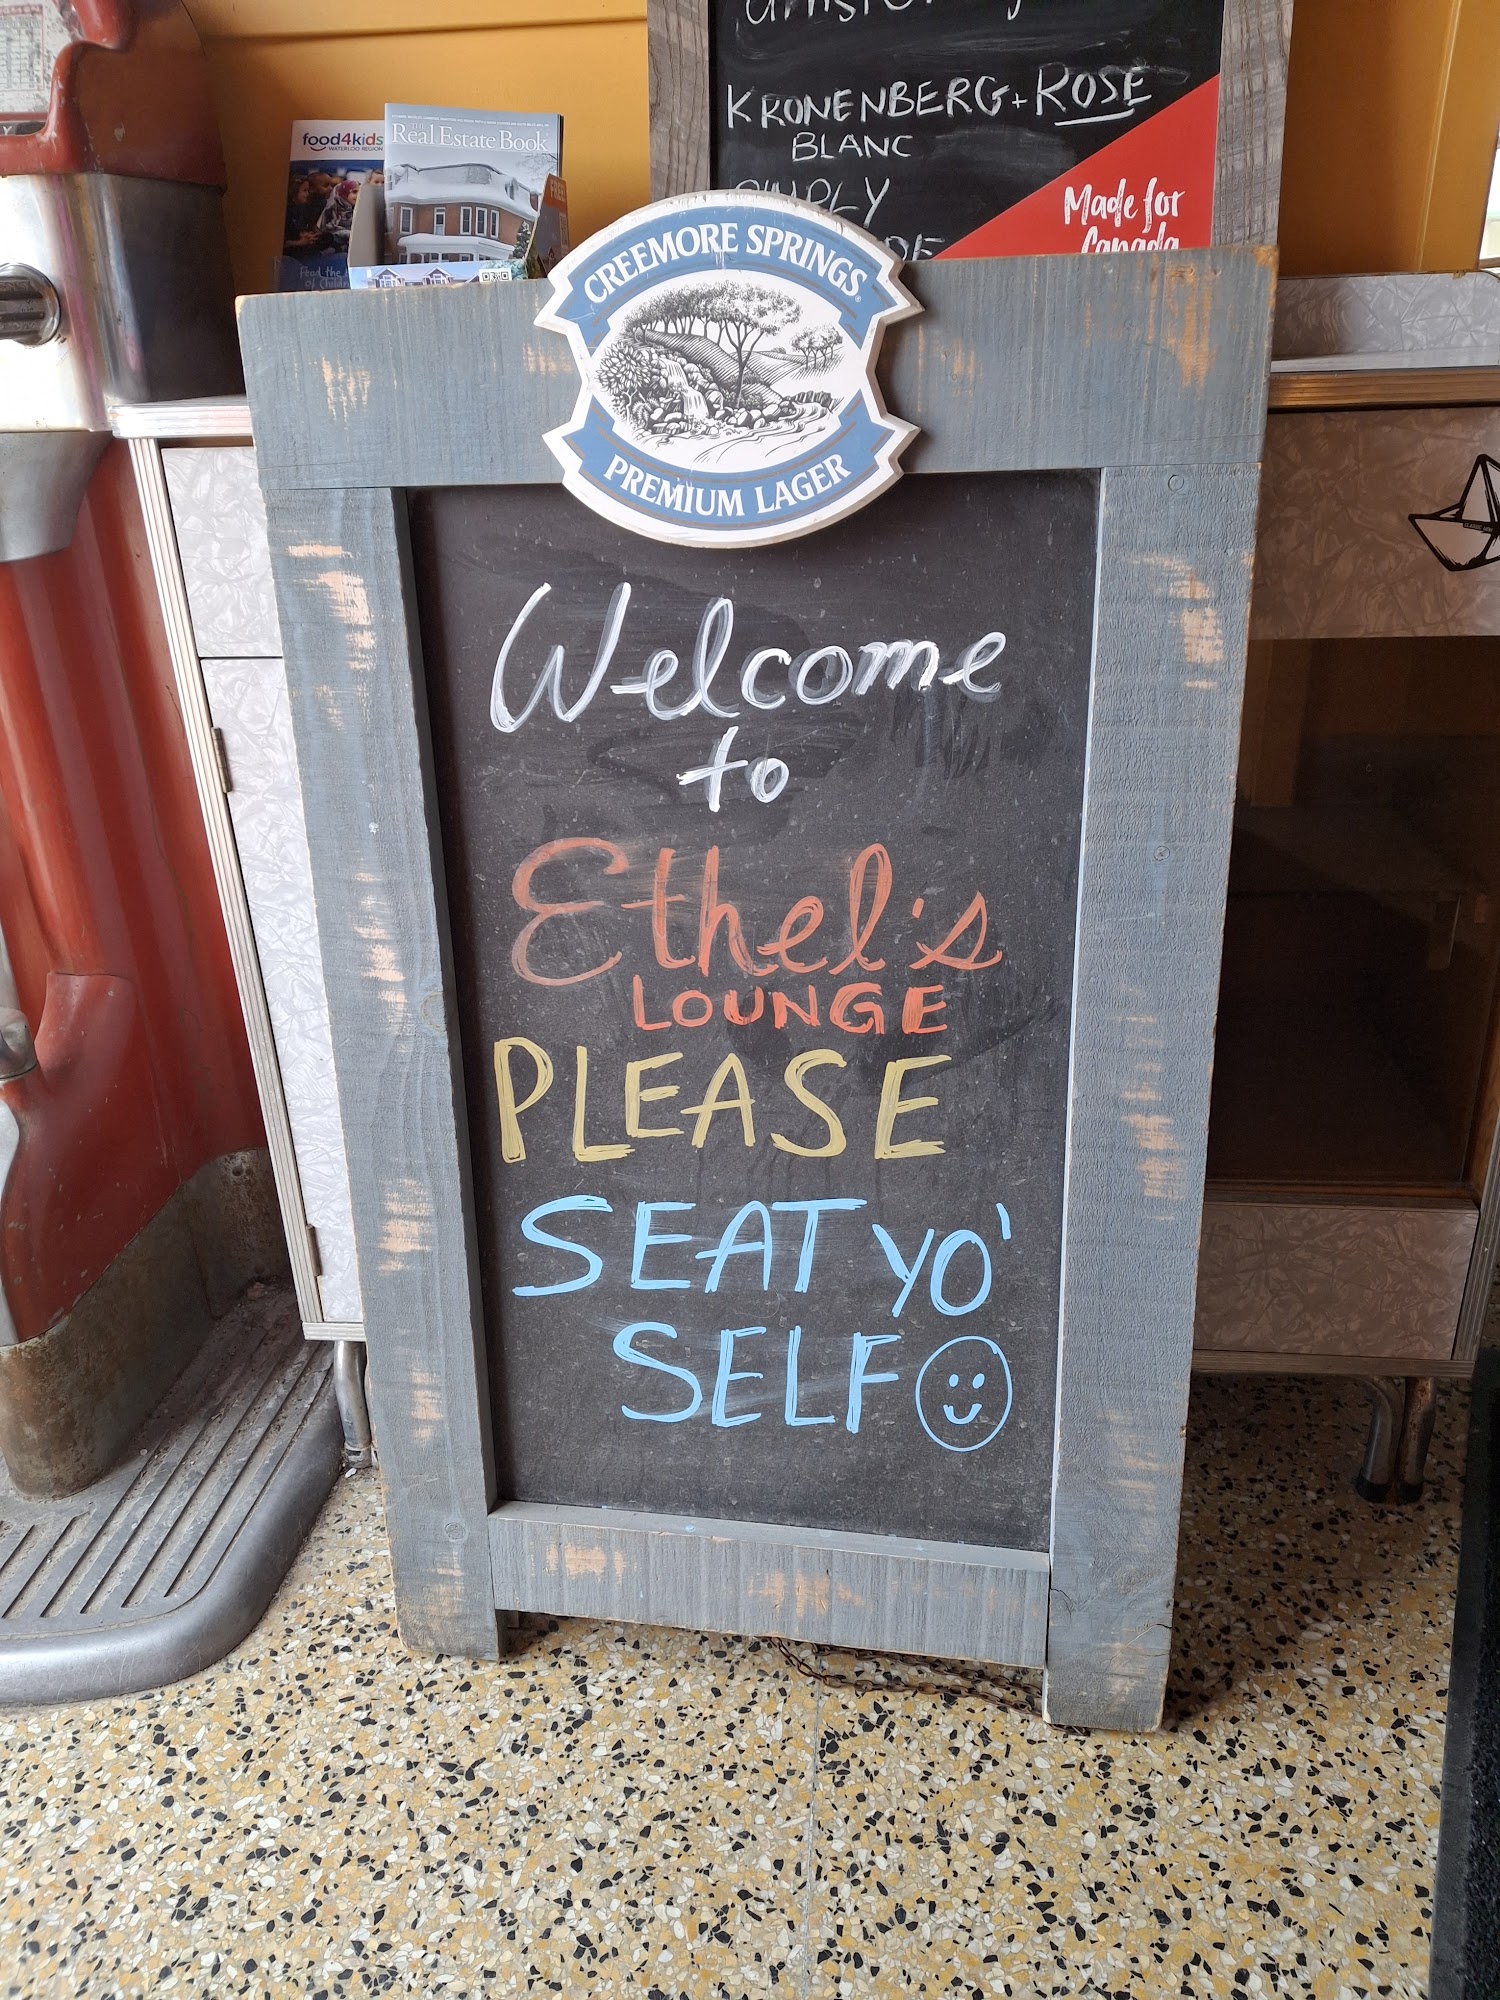 KRONENBERG + ROSÉ
BLANC
Made for
Canada
food4kids
WATERLOO REGION
The Real Estate Book
FREE
CREEMORE SPRINGS
PREMIUM LAGER
Welcome
to
Ethel's
LOUNGE
PLEASE
SEAT YO'
SELF